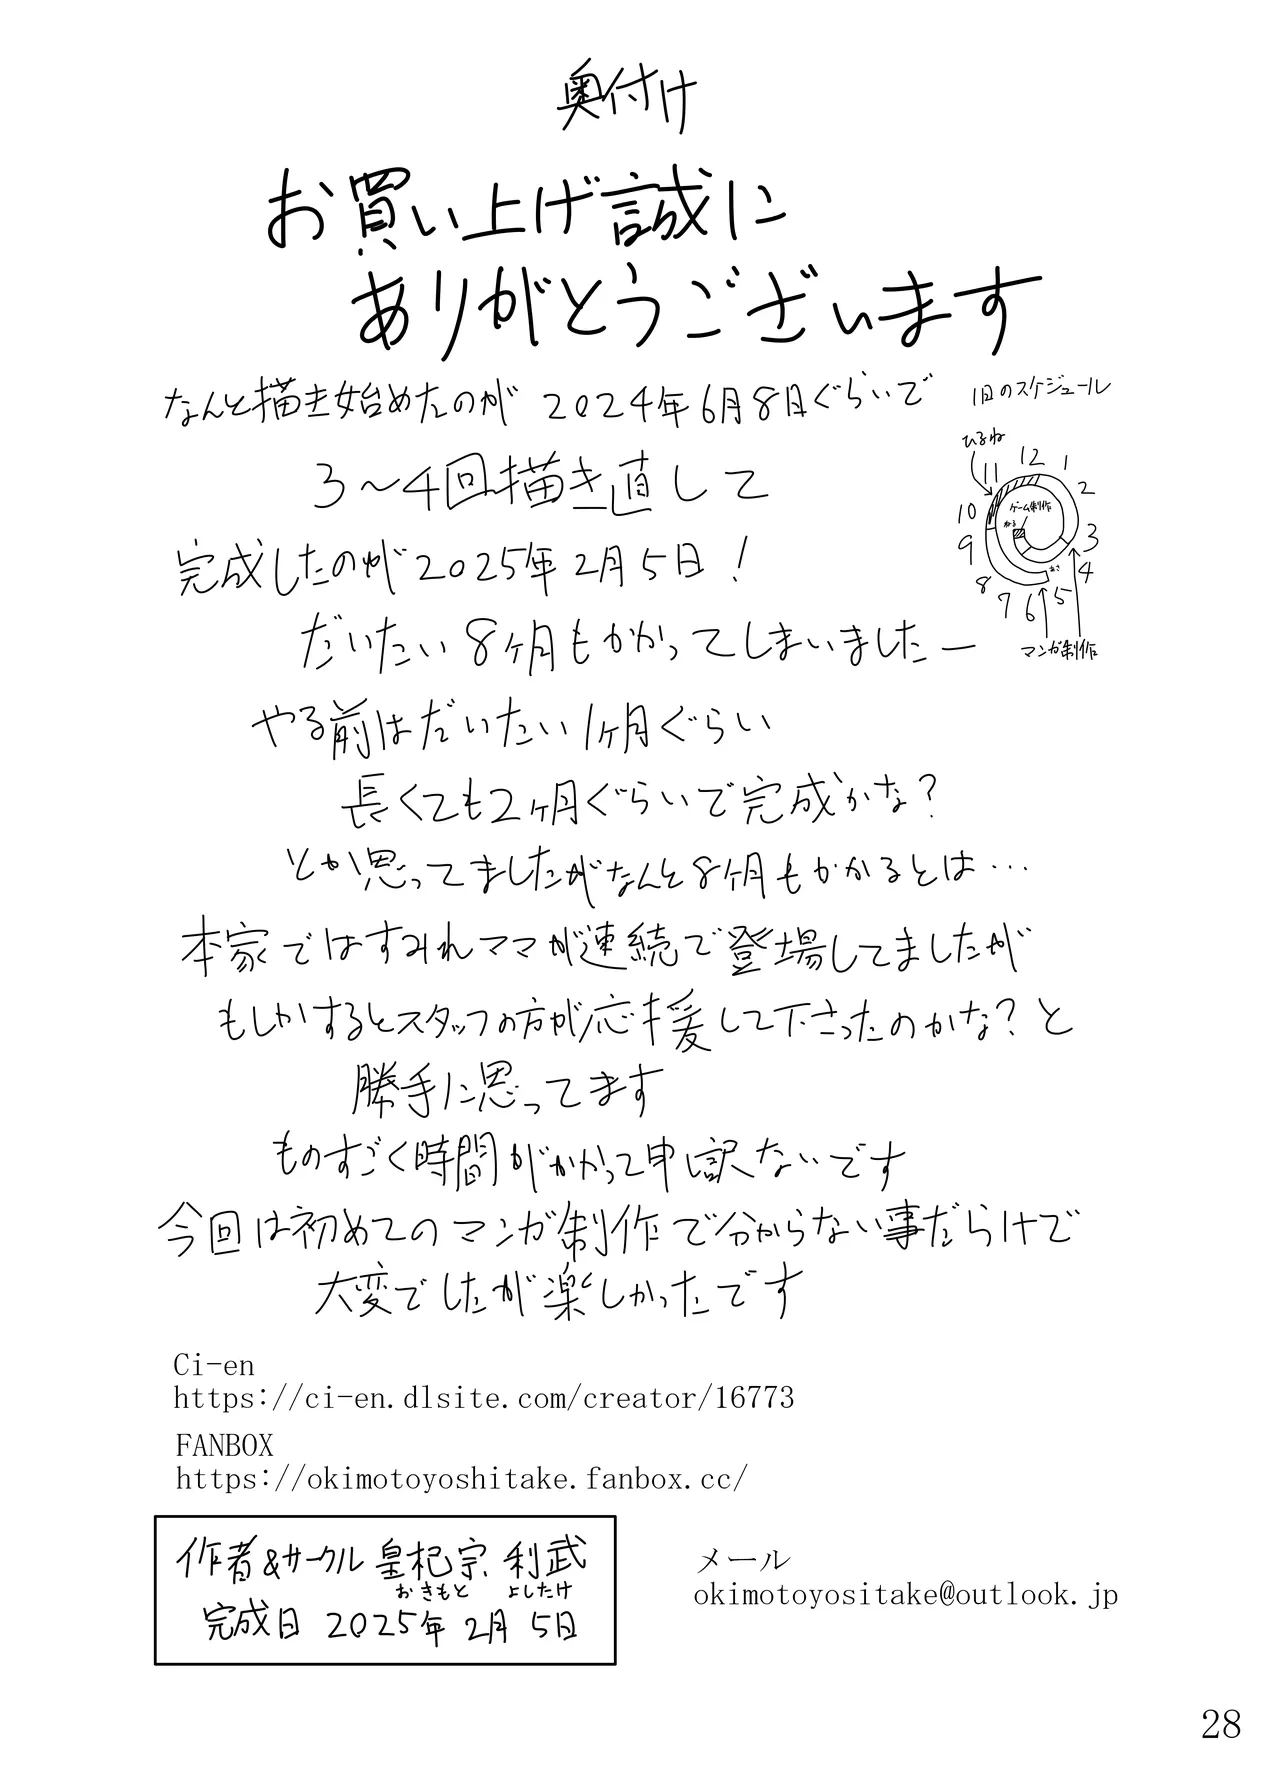 奥付け
お買い上げ誠に
ありがとうございます
なんと描き始めたのが 2024年6月8日ぐらいで
3～4回描き直して
完成したのが2025年2月5日！
だいたい8ヶ月もかかってしまいましたー
やる前はだいたい1ヶ月ぐらい
長くても2ヶ月ぐらいで完成かな？
とか思ってましたがなんと8ヶ月もかかるとは…
本家ではすみれママが連続で登場してましたが
もしかするとスタッフの方が応援して下さったのかな？と
勝手に思ってます
ものすごく時間がかかって申し訳ないです
今回は初めてのマンガ制作で分からない事だらけで
大変でしたが楽しかったです
1日のスケジュール
ひるね
12
1
2
3
4
5
6
7
8
9
10
11
ゲーム制作
ねる
あさ
マンガ制作
Ci-en
https://ci-en.dlsite.com/creator/16773
FANBOX
https://okimotoyoshitake.fanbox.cc/
作者&サークル 皇杞宗 利武
おきもと よしたけ
完成日 2025年2月5日
メール
okimotoyositake@outlook.jp
28